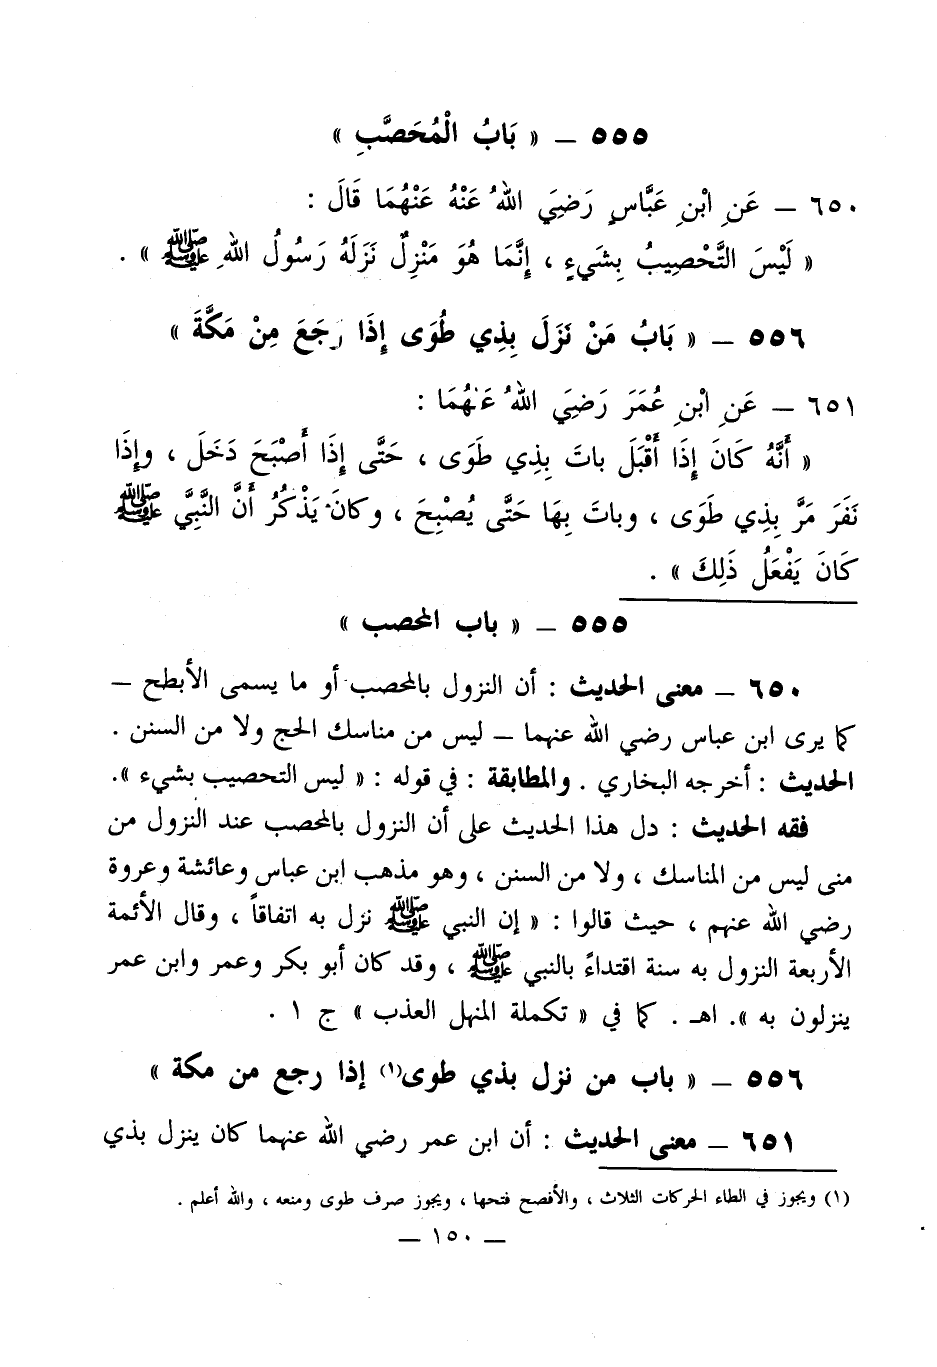 ٥٥٥ – « بَابُ الْمُحَصَّبِ »
٦٥٠ – عَنِ ابْنِ عَبَّاسٍ رَضِيَ اللهُ عَنْهُ عَنْهُمَا قَالَ :
« لَيْسَ التَّحْصِيبُ بِشَيءٍ ، إِنَّمَا هُوَ مَنْزِلٌ نَزَلَهُ رَسُولُ اللهِ ﷺ » .
٥٥٦ – « بَابُ مَنْ نَزَلَ بِذِي طُوَى إِذَا رَجَعَ مِنْ مَكَّةَ »
٦٥١ – عَنِ ابْنِ عُمَرَ رَضِيَ اللهُ عَنْهُمَا :
« أَنَّهُ كَانَ إِذَا أَقْبَلَ باتَ بِذِي طَوَى ، حَتَّى إِذَا أَصْبَحَ دَخَلَ ، وإِذَا
نَفَرَ مَرَّ بِذِي طَوَى ، وباتَ بِهَا حَتَّى يُصْبِحَ ، وكانَ يَذْكُرُ أَنَّ النَّبِيَّ ﷺ
كَانَ يَفْعَلُ ذَلِكَ » .
٥٥٥ – « باب المحصب »
٦٥٠ – معنى الحديث : أن النزول بالمحصب أو ما يسمى الأبطح –
كما يرى ابن عباس رضي الله عنهما – ليس من مناسك الحج ولا من السنن .
الحديث : أخرجه البخاري . والمطابقة : في قوله : « ليس التحصيب بشيء ».
فقه الحديث : دل هذا الحديث على أن النزول بالمحصب عند النزول من
منى ليس من المناسك ، ولا من السنن ، وهو مذهب ابن عباس وعائشة وعروة
رضي الله عنهم ، حيث قالوا : « إن النبي ﷺ نزل به اتفاقاً ، وقال الأئمة
الأربعة النزول به سنة اقتداءً بالنبي ﷺ ، وقد كان أبو بكر وعمر وابن عمر
ينزلون به ». اهـ . كما في « تكملة المنهل العذب » ج ١ .
٥٥٦ – « باب من نزل بذي طوى(١) إذا رجع من مكة »
٦٥١ – معنى الحديث : أن ابن عمر رضي الله عنهما كان ينزل بذي
(١) ويجوز في الطاء الحركات الثلاث ، والأفصح فتحها ، ويجوز صرف طوى ومنعه ، والله أعلم .
– ١٥٠ –